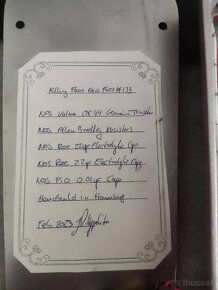 Killing Floor Fuzz #133
NOS Valvo OC44 Germanium Transistor
NOS Allen Bradley Resistors
NOS Roe Electrolytic Cap
NOS Roe 22µF Electrolytic Cap
NOS PIO 0.01µF Caps
Handbuild in Hamburg
Feb. 2023
Bazos.sk